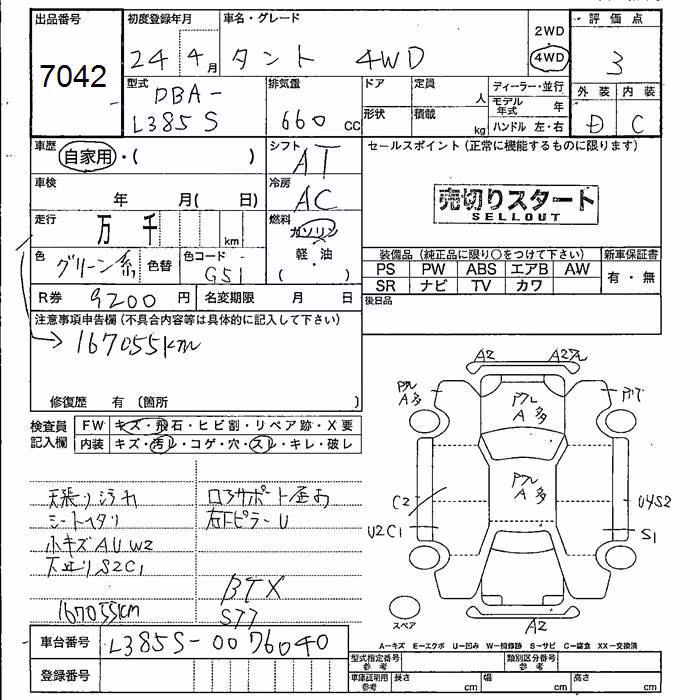 出品番号
7042
初度登録年月
24 4月
車名・グレード
タント 4WD
2WD
4WD
評価点
3
外装 内装
D C
型式
DBA-
L385S
排気量
660 cc
ドア
形状
定員
人
積載
kg
ディーラー・並行
モデル年式 年
ハンドル 左・右
車歴
自家用・( )
シフト
AT
セールスポイント(正常に機能するものに限ります)
車検
年 月( 日)
冷房
AC
売切りスタート
SELLOUT
走行
万 千 km
燃料
ガソリン
軽・油
( )
色
グリーン系
色替
色コード
G51
装備品(純正品に限り○をつけて下さい)
新車保証書
PS PW ABS エアB AW
SR ナビ TV カワ
有・無
R券 9200 円
名変期限 月 日
後日品
注意事項申告欄(不具合内容等は具体的に記入して下さい)
→167055km
修復歴 有(箇所 )
検査員記入欄
FW キズ・飛石・ヒビ割・リペア跡・X要
内装 キズ・汚レ・コゲ・穴・スレ・キレ・破レ
天張り汚れ
シートヘタリ
小キズAUW2
下廻りS2C1
167055km
コアサポート歪み
右Fピラー U
BTX
S77
A2
A2アル
アル
A多
アル
A多
アル
A多
C2
U2C1
U4S2
S1
スペア
A2
A-キズ E-エクボ U-凹み W-補修跡 S-サビ C-腐食 XX-交換済
車台番号
L385S-0076040
登録番号
型式指定番号
参考
類別区分番号
参考
車庫証明用
参考
長さ cm
幅 cm
高さ cm